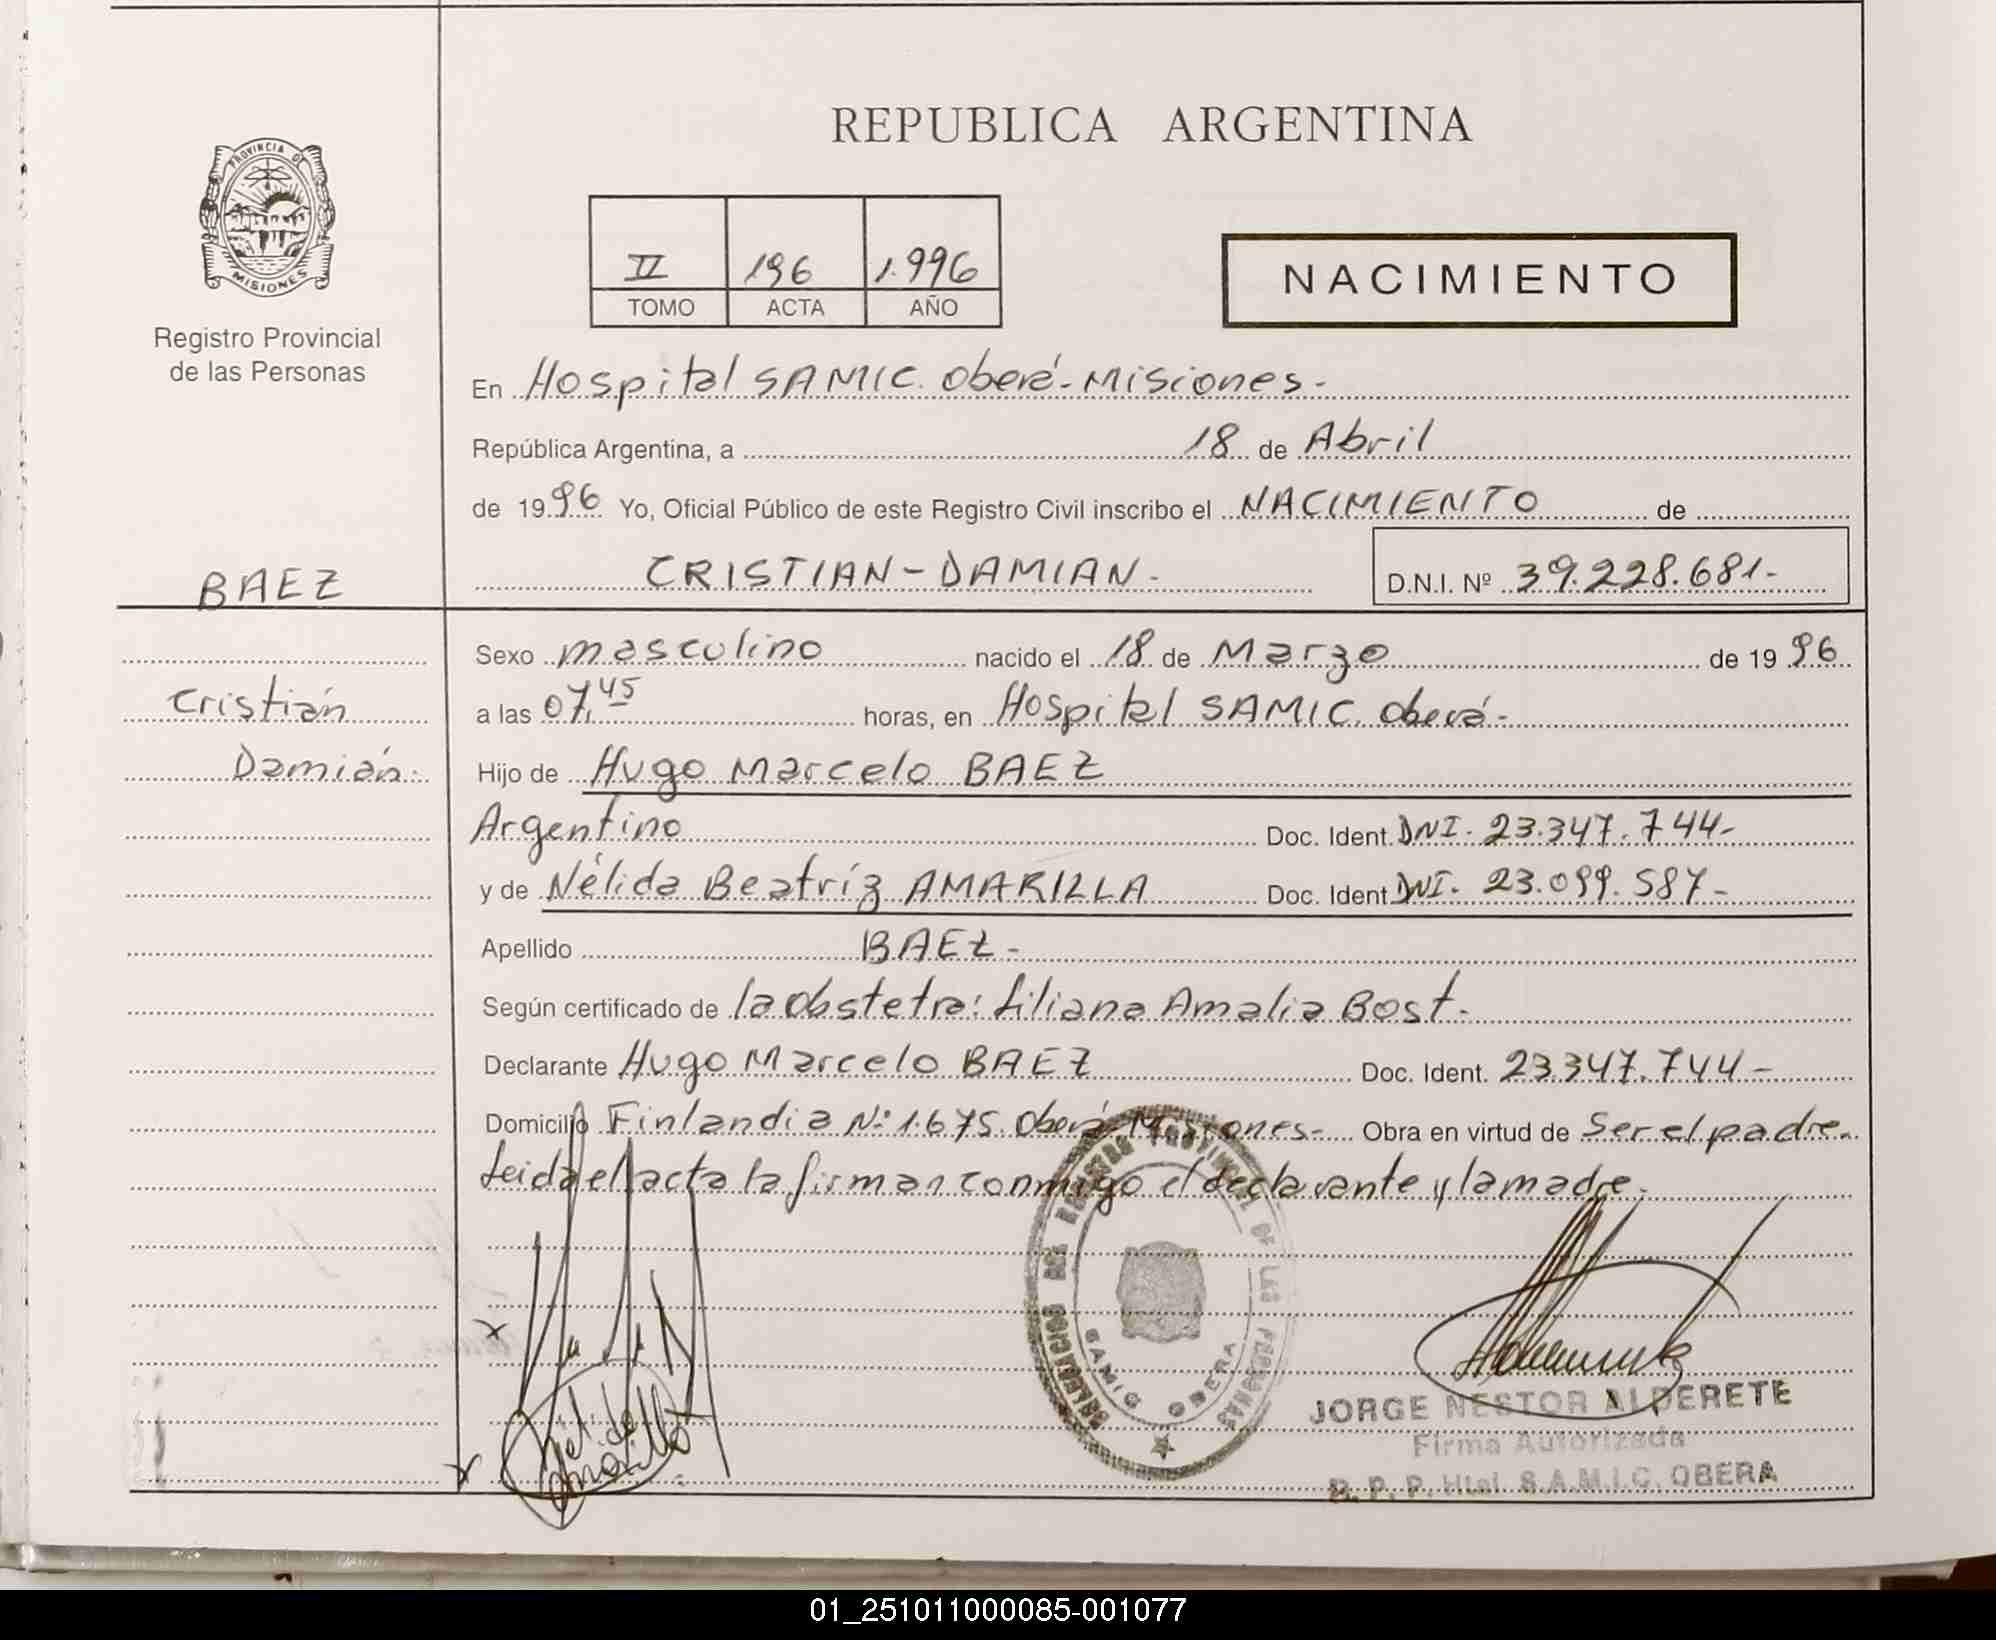 REPUBLICA ARGENTINA
PROVINCIA DE
MISIONES
Registro Provincial
de las Personas
II 196 1.996
TOMO ACTA AÑO
NACIMIENTO
En Hospital SAMIC. Oberá-Misiones-
República Argentina, a 18 de Abril
de 1996 Yo, Oficial Público de este Registro Civil inscribo el NACIMIENTO de
BAEZ
CRISTIAN-DAMIAN- D.N.I. Nº 39.228.681-
Cristián
Damián-
Sexo masculino nacido el 18 de Marzo de 1996
a las 07,45 horas, en Hospital SAMIC. Oberá-
Hijo de Hugo Marcelo BAEZ
Argentino Doc. Ident. DNI. 23.347.744-
y de Nélida Beatríz AMARILLA Doc. Ident DNI. 23.099.587-
Apellido BAEZ-
Según certificado de la obstetra: Liliana Amalia Bost.
Declarante Hugo Marcelo BAEZ Doc. Ident. 23.347.744-
Domicilio Finlandia Nº 1.675. Oberá-Misiones- Obra en virtud de Ser el padre.
Leida el acta la firman conmigo el declarante y la madre.
DELEGACION DEL REGISTRO PROVINCIAL DE LAS PERSONAS
SAMIC OBERA
Nélida
Amarilla
JORGE NESTOR ALDERETE
Firma Autorizada
R. P. P. Htal. S.A.M.I.C. OBERA
01_251011000085-001077